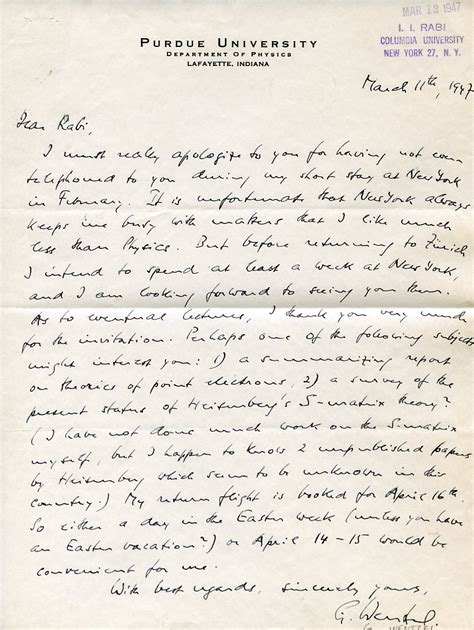 MAR 12 1947
I. I. RABI
COLUMBIA UNIVERSITY
NEW YORK 27, N. Y.
PURDUE UNIVERSITY
DEPARTMENT OF PHYSICS
LAFAYETTE, INDIANA
March 11th, 1947
Dear Rabi,
I must really apologize to you for having not even
telephoned to you during my short stay at New York
in February. It is unfortunate that New York always
keeps me busy with matters that I like much
less than Physics. But before returning to Zürich
I intend to spend at least a week at New York,
and I am looking forward to seeing you then.
As to eventual lectures, I thank you very much
for the invitation. Perhaps one of the following subjects
might interest you: 1) a summarizing report
on theories of point electrons, 2) a survey of the
present status of Heisenberg's S-matrix theory?
(I have not done much work on the S-matrix
myself, but I happen to know 2 unpublished papers
by Heisenberg which seem to be unknown in this
country.) My return flight is booked for April 16th.
So either a day in the Easter week (unless you have
an Easter vacation?) or April 14-15 would be
convenient for me.
With best regards, sincerely yours,
G. Wentzel
G. WENTZEL